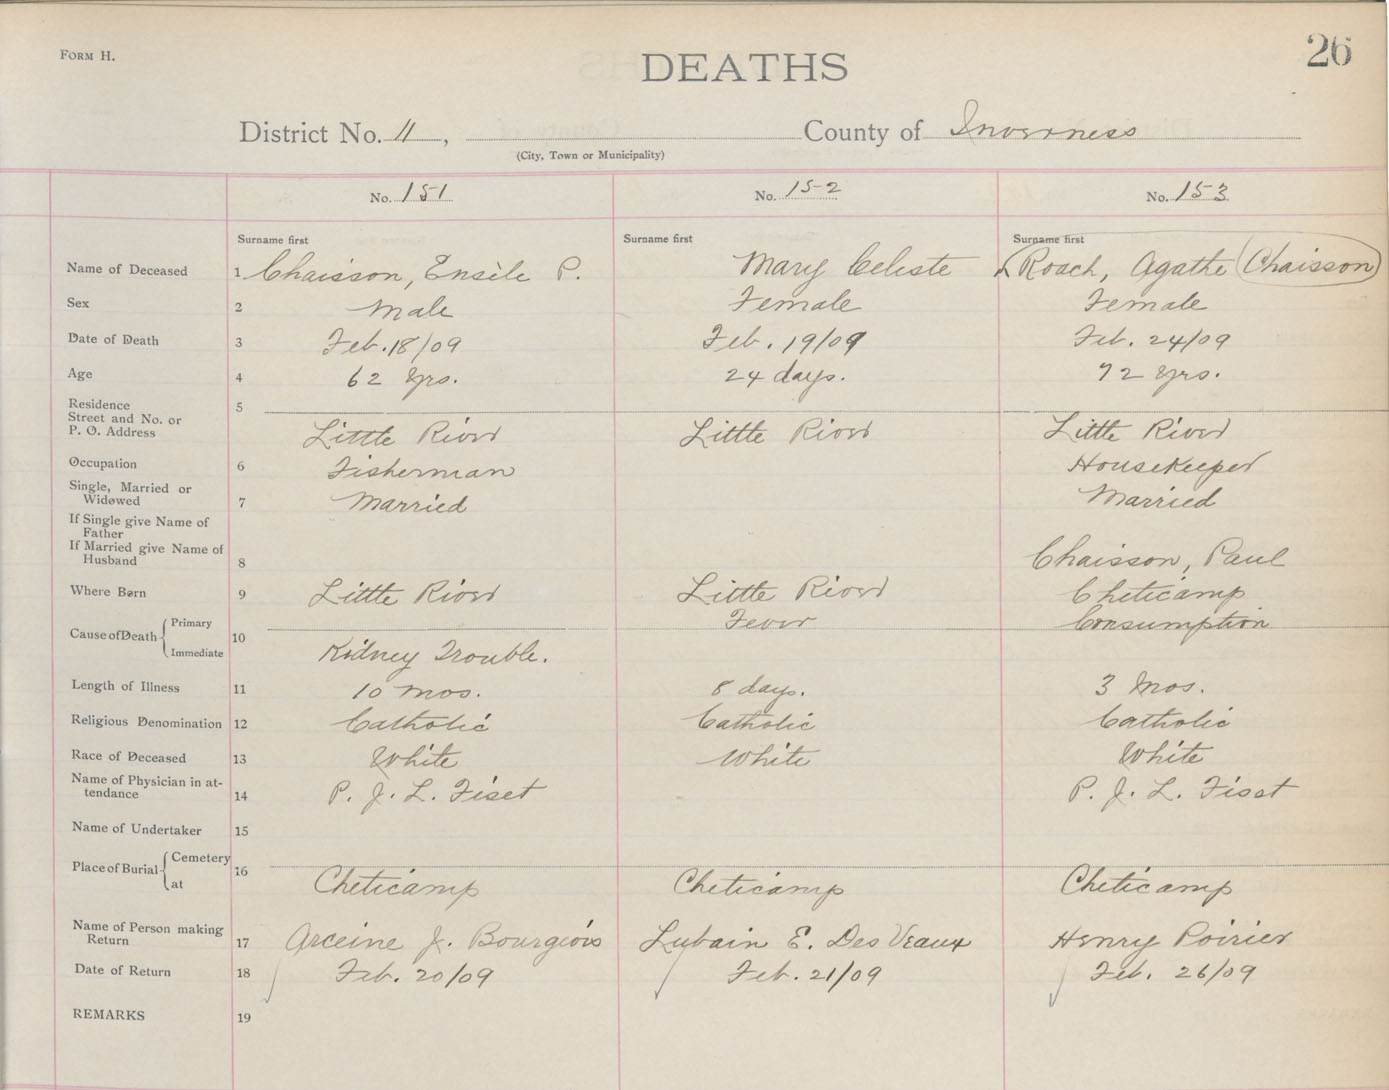 FORM H.
26
DEATHS
District No. 11, County of Inverness
(City, Town or Municipality)
No. 151 No. 152 No. 153
Surname first Surname first Surname first
Name of Deceased 1 Chaisson, Ensèle P. Mary Celeste Roach, Agathe (Chaisson)
Sex 2 Male Female Female
Date of Death 3 Feb. 18/09 Feb. 19/09 Feb. 24/09
Age 4 62 yrs. 24 days. 72 yrs.
Residence 5
Street and No. or
P. O. Address Little River Little River Little River
Occupation 6 Fisherman Housekeeper
Single, Married or
Widowed 7 Married Married
If Single give Name of
Father
If Married give Name of
Husband 8 Chaisson, Paul
Where Born 9 Little River Little River Cheticamp
Cause of Death Primary 10 Fever Consumption
Immediate Kidney Trouble.
Length of Illness 11 10 mos. 8 days. 3 mos.
Religious Denomination 12 Catholic Catholic Catholic
Race of Deceased 13 White White White
Name of Physician in at-
tendance 14 P. J. L. Fiset P. J. L. Fiset
Name of Undertaker 15
Place of Burial Cemetery 16
at Cheticamp Cheticamp Cheticamp
Name of Person making
Return 17 Arceine J. Bourgeois Lubain E. DesVeaux Henry Poirier
Date of Return 18 Feb. 20/09 Feb. 21/09 Feb. 26/09
REMARKS 19